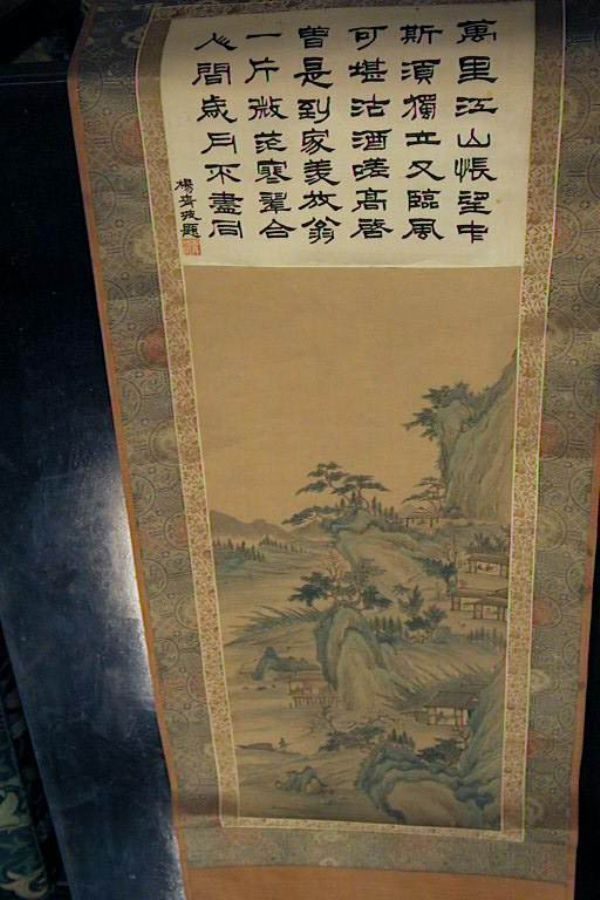 萬里江山悵望中
斯須獨立又臨風
可堪沽酒嗟高啓
曾是到家羨放翁
一片微茫寒翠合
人間歲月不盡同
楊齊坡題